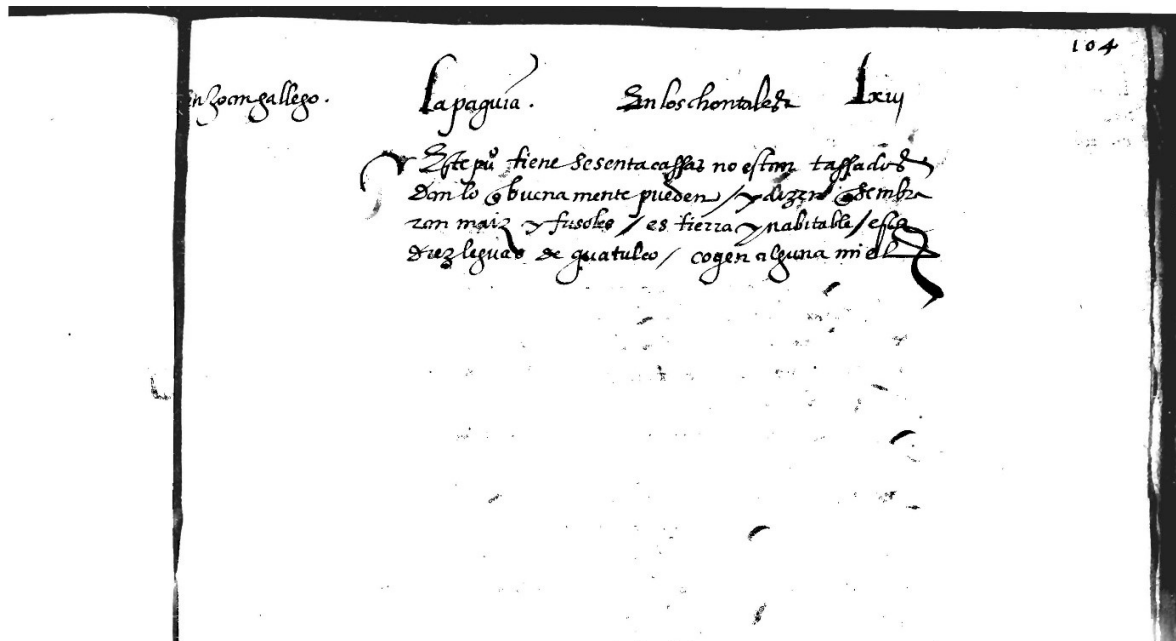 104
en Joan gallego. Lapaguia. En los chontales Lxiij
Este puo tiene sesenta cassas no estan tassados
dan lo q buena mente pueden / y dizen q sembra
ran maiz y frisoles / es tierra ynabitable / esta
diez leguas de guatulco / cogen alguna miel